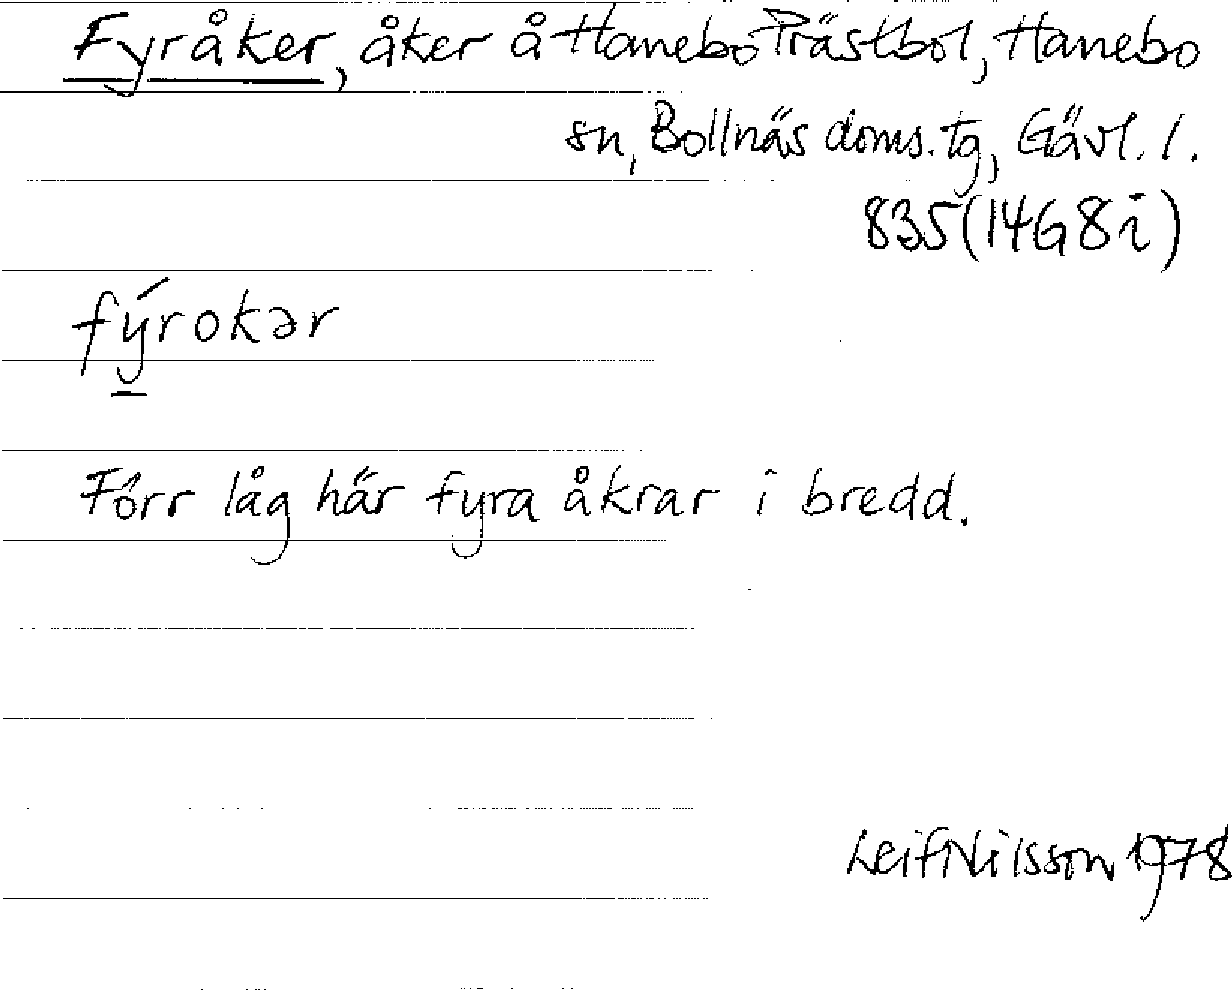 Fyråker, åker å Hanebo Prästbol, Hanebo
sn, Bollnäs doms. tg, Gävl. l.
835 (14G8i)
fýrokər
Förr låg här fyra åkrar i bredd.
Leif Nilsson 1978